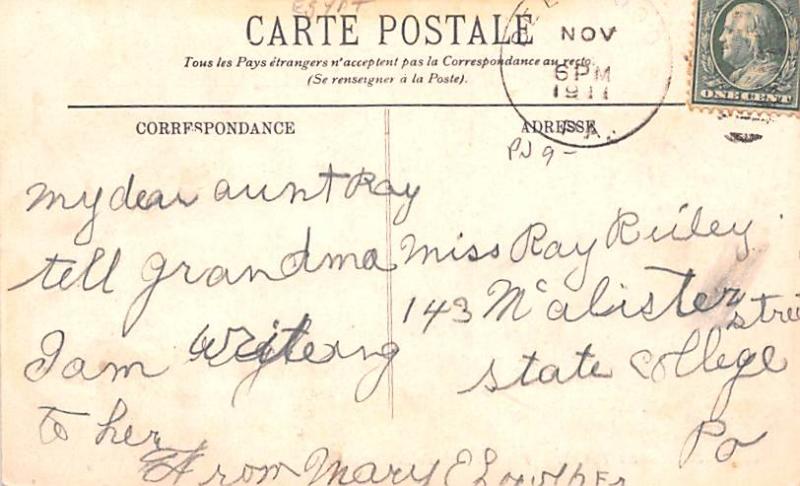 EGYPT
CARTE POSTALE
Tous les Pays étrangers n'acceptent pas la Correspondance au recto.
(Se renseigner à la Poste).
NOV
6 PM
1911
PA.
ONE CENT
CORRESPONDANCE
ADRESSE
PJ 9-
My dear aunt Ray
tell grandma
I am writeing
to her
From Mary E
Miss Ray Riley
143 Mcalister street
state College
Pa